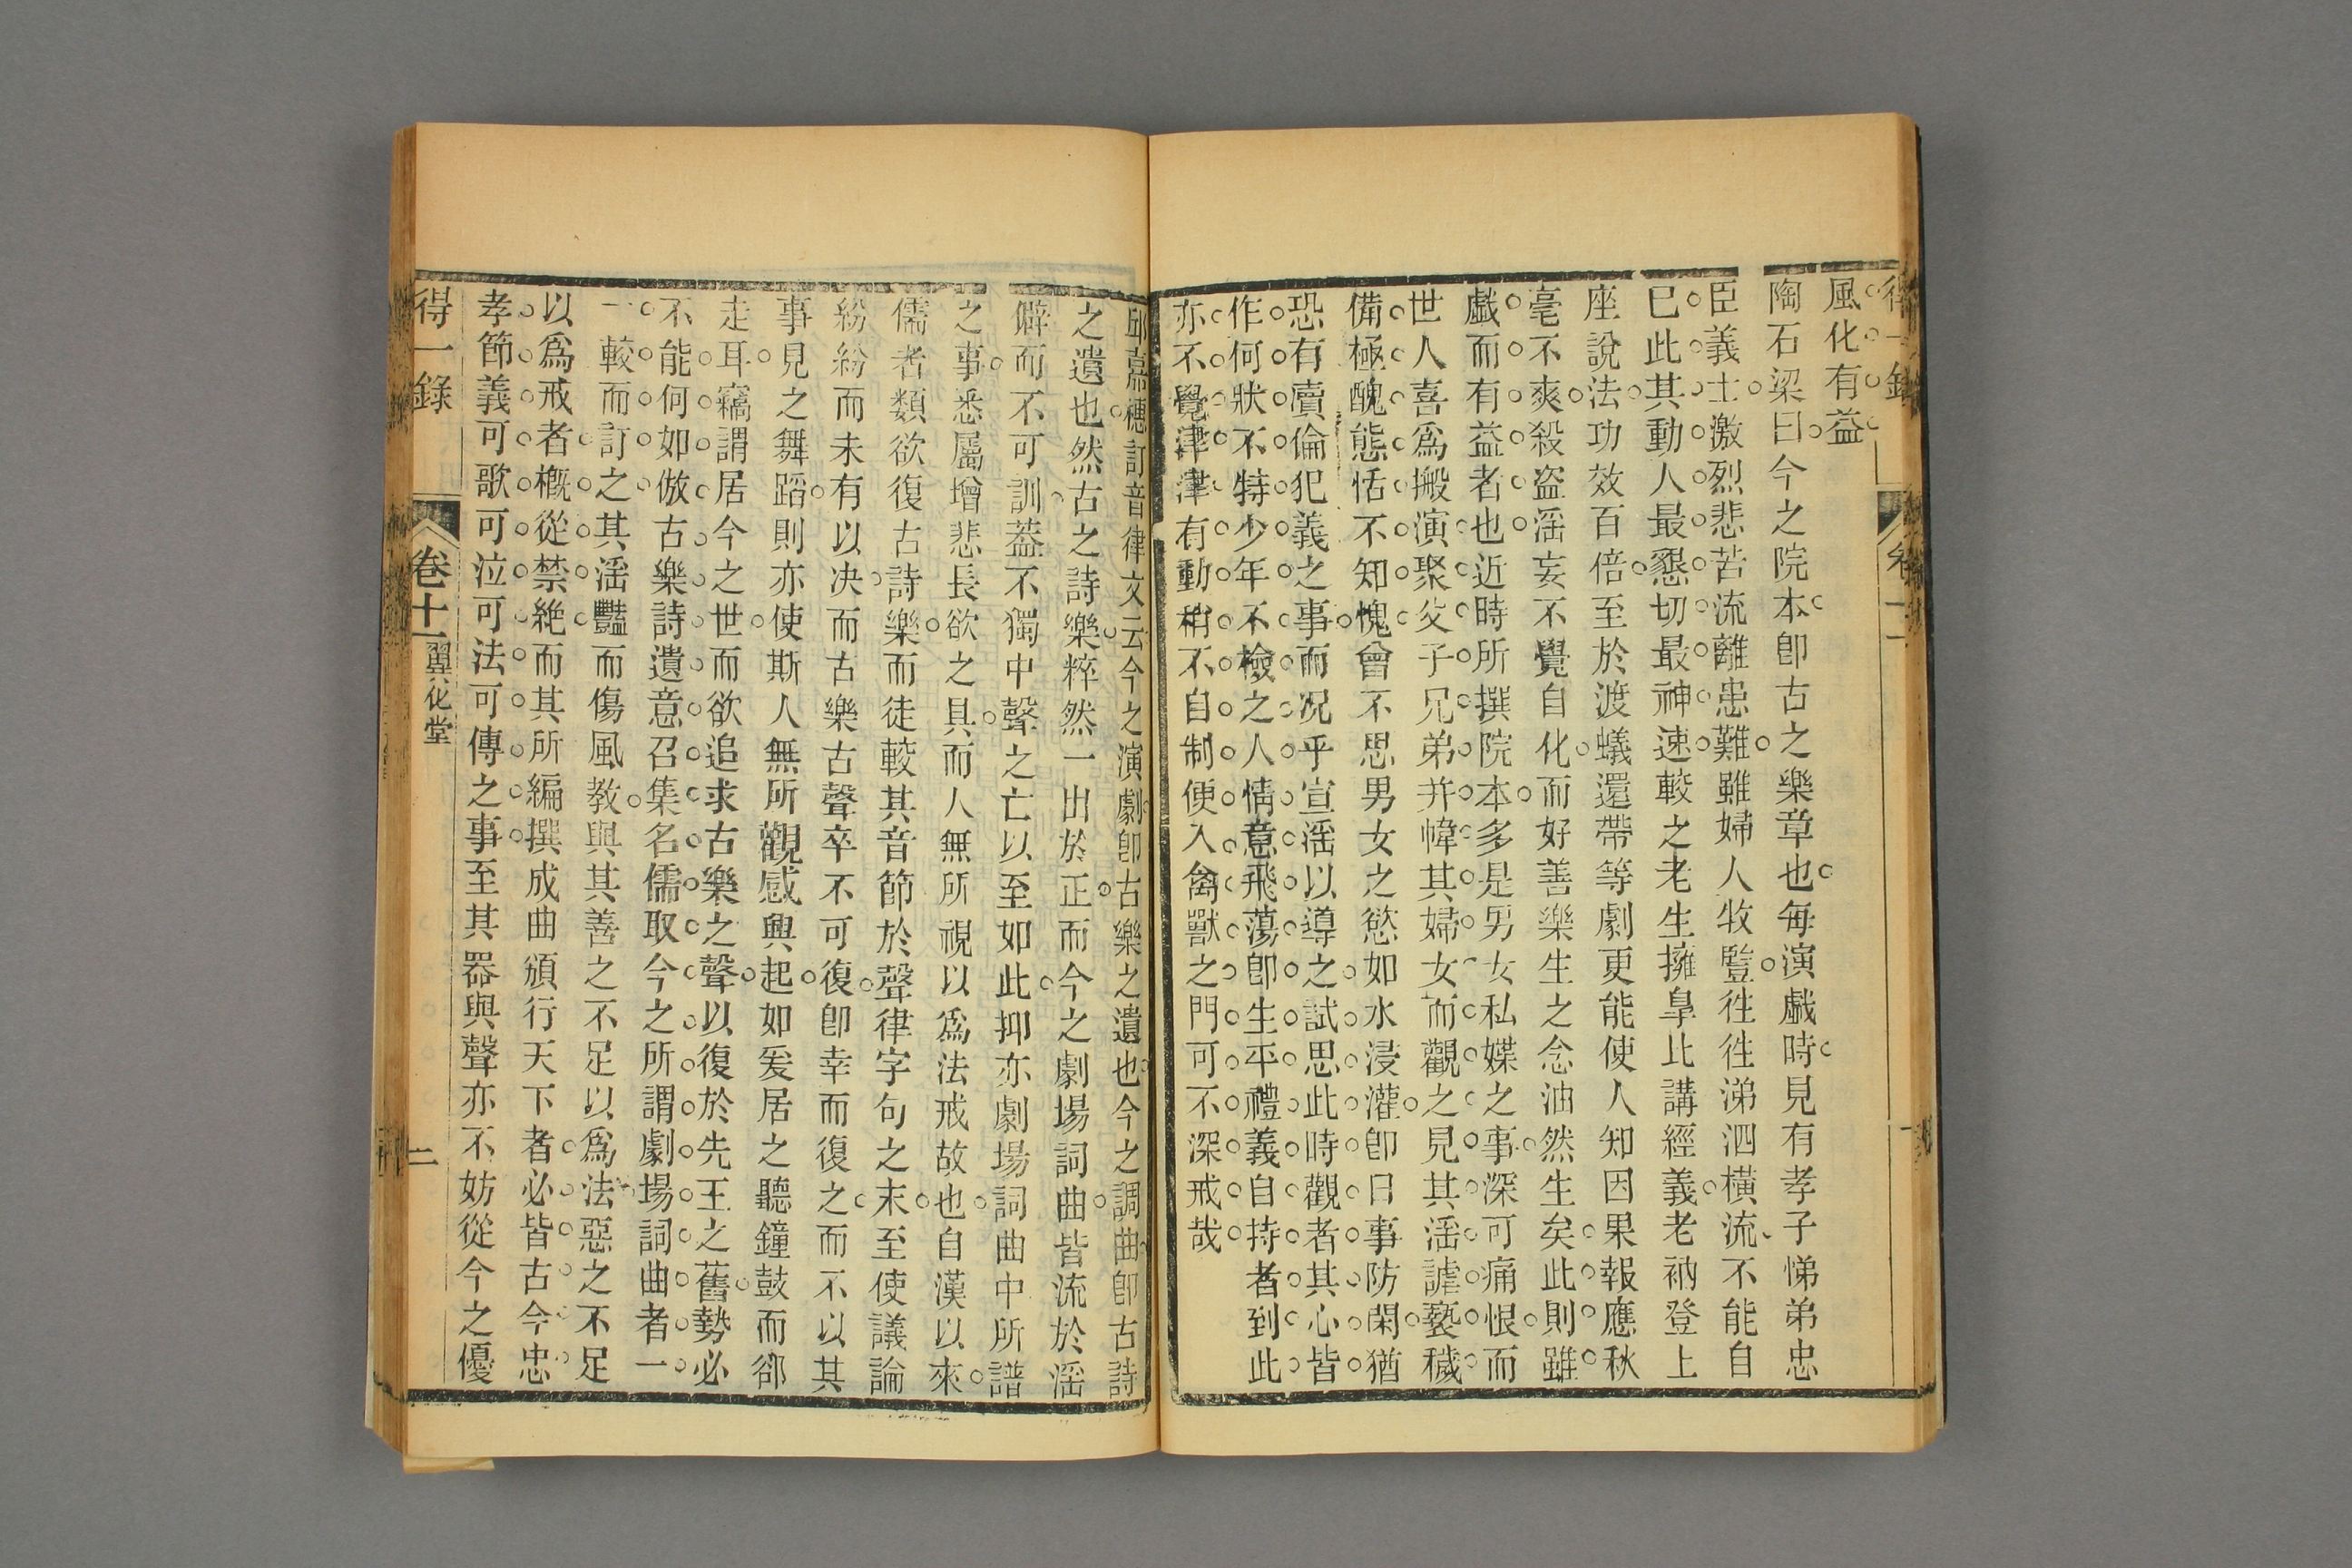 得一錄
卷十一
風化有益
陶石梁曰今之院本卽古之樂章也每演戲時見有孝子悌弟忠
臣義士激烈悲苦流離患難雖婦人牧豎徃徃涕泗橫流不能自
已此其動人最懇切最神速較之老生擁臯比講經義老衲登上
座說法功效百倍至於渡蟻還帶等劇更能使人知因果報應秋
毫不爽殺盜淫妄不覺自化而好善樂生之念油然生矣此則雖
戲而有益者也近時所撰院本多是男女私媟之事深可痛恨而
世人喜爲搬演聚父子兄弟并幃其婦女而觀之見其淫謔褻穢
備極醜態恬不知愧曾不思男女之慾如水浸灌卽日事防閑猶
恐有瀆倫犯義之事而况乎宣淫以導之試思此時觀者其心皆
作何狀不特少年不檢之人情意飛蕩卽生平禮義自持者到此
亦不覺津津有動稍不自制便入禽獸之門可不深戒哉
邱嘉穗訂音律文云今之演劇卽古樂之遺也今之調曲卽古詩
之遺也然古之詩樂粹然一出於正而今之劇場詞曲皆流於淫
僻而不可訓葢不獨中聲之亡以至如此抑亦劇場詞曲中所譜
之事悉屬增悲長欲之具而人無所視以爲法戒故也自漢以來
儒者類欲復古詩樂而徒較其音節於聲律字句之末至使議論
紛紛而未有以决而古樂古聲卒不可復卽幸而復之而不以其
事見之舞蹈則亦使斯人無所觀感興起如爰居之聽鐘鼓而郤
走耳竊謂居今之世而欲追求古樂之聲以復於先王之舊勢必
不能何如倣古樂詩遺意召集名儒取今之所謂劇場詞曲者一
一較而訂之其淫豔而傷風教與其善之不足以爲法惡之不足
以爲戒者概從禁絶而其所編撰成曲頒行天下者必皆古今忠
孝節義可歌可泣可法可傳之事至其器與聲亦不妨從今之優
得一錄
卷十一
翼化堂
二